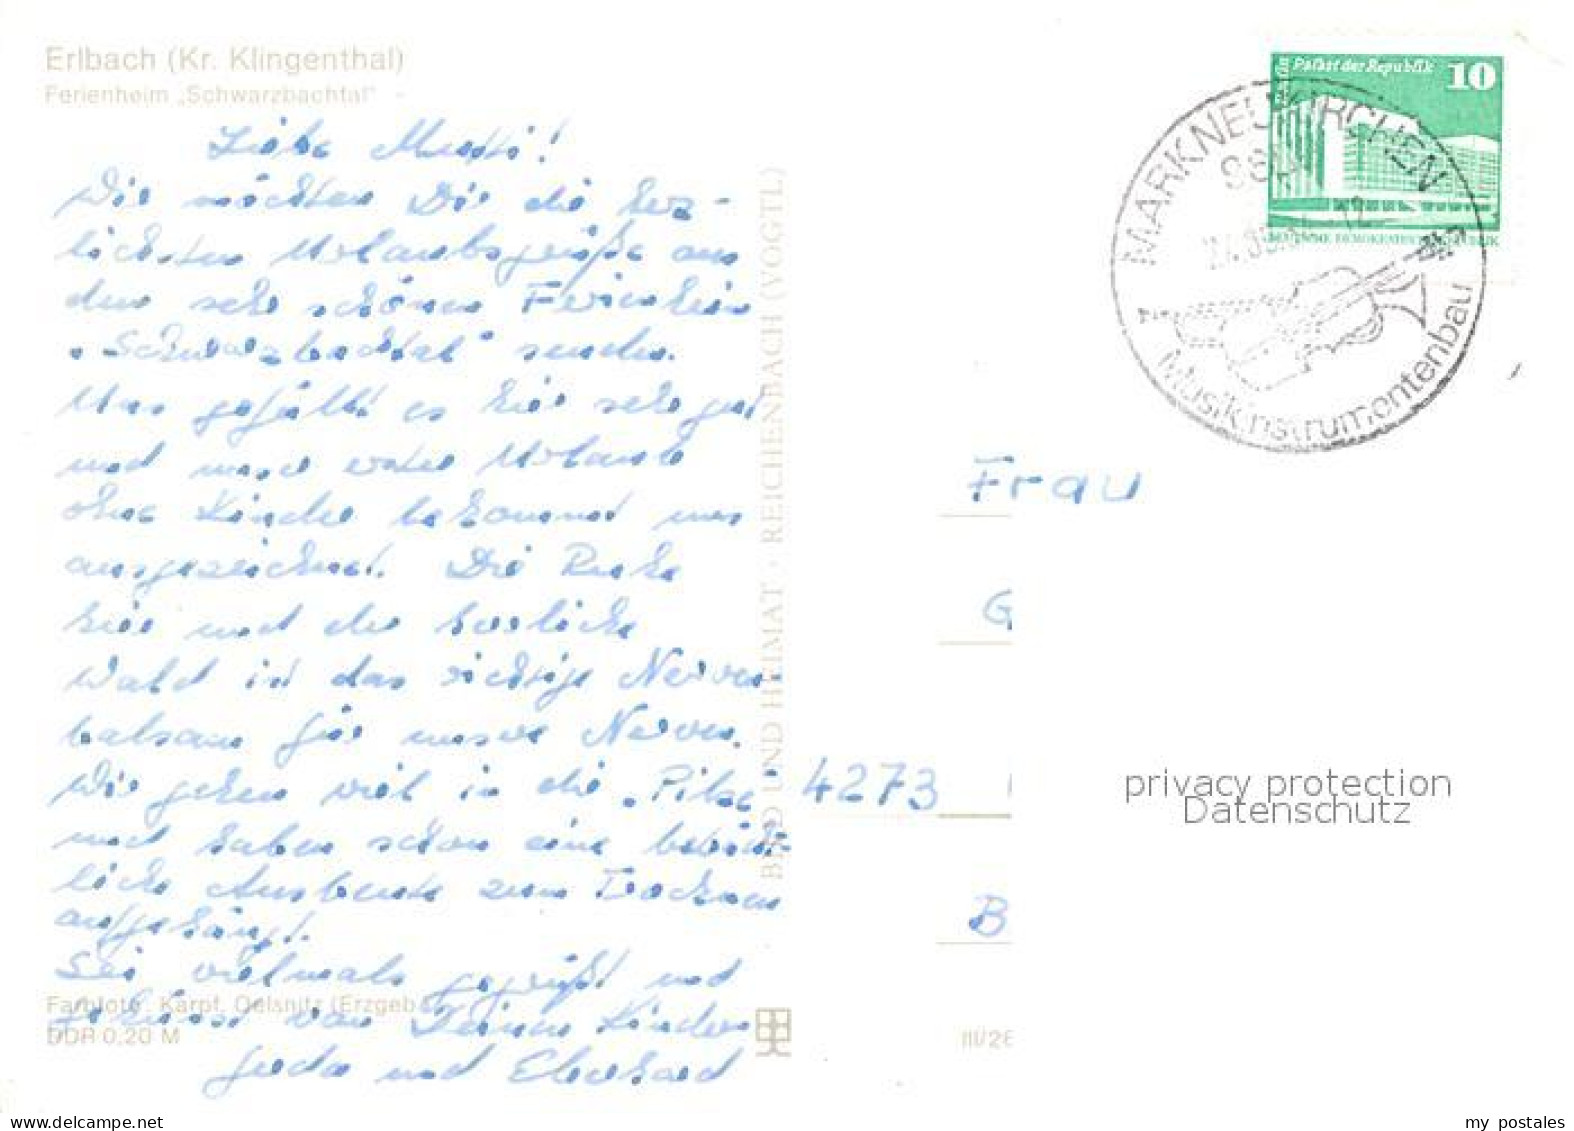 Erlbach (Kr. Klingenthal)
Ferienheim „Schwarzbachtal"
Liebe Mutti!
Wir möchten Dir die herz-
lichsten Urlaubsgrüße aus
dem sehr schönen Ferienheim
„Schwarzbachtal" senden.
Uns gefällt es hier sehr gut
und unser erster Urlaub
ohne Kinder bekommt uns
ausgezeichnet. Die Ruhe
hier und der herrliche
Wald ist das richtige Nerven-
balsam für unsere Nerven.
Wir gehen viel in die „Pilze
und haben schon eine beträcht-
liche Ausbeute zum Trocknen
aufgehängt.
Sei vielmals gegrüßt und
geküsst von Deinen Kindern
und Eberhard
Farbfoto: Karpf, Oelsnitz (Erzgeb.)
DDR 0,20 M
BILD UND HEIMAT · REICHENBACH (VOGTL)
Palast der Republik 10
DEUTSCHE DEMOKRATISCHE REPUBLIK
MARKNEUKIRCHEN
Musikinstrumentenbau
Frau
G
4273
B
privacy protection
Datenschutz
www.delcampe.net
my postales